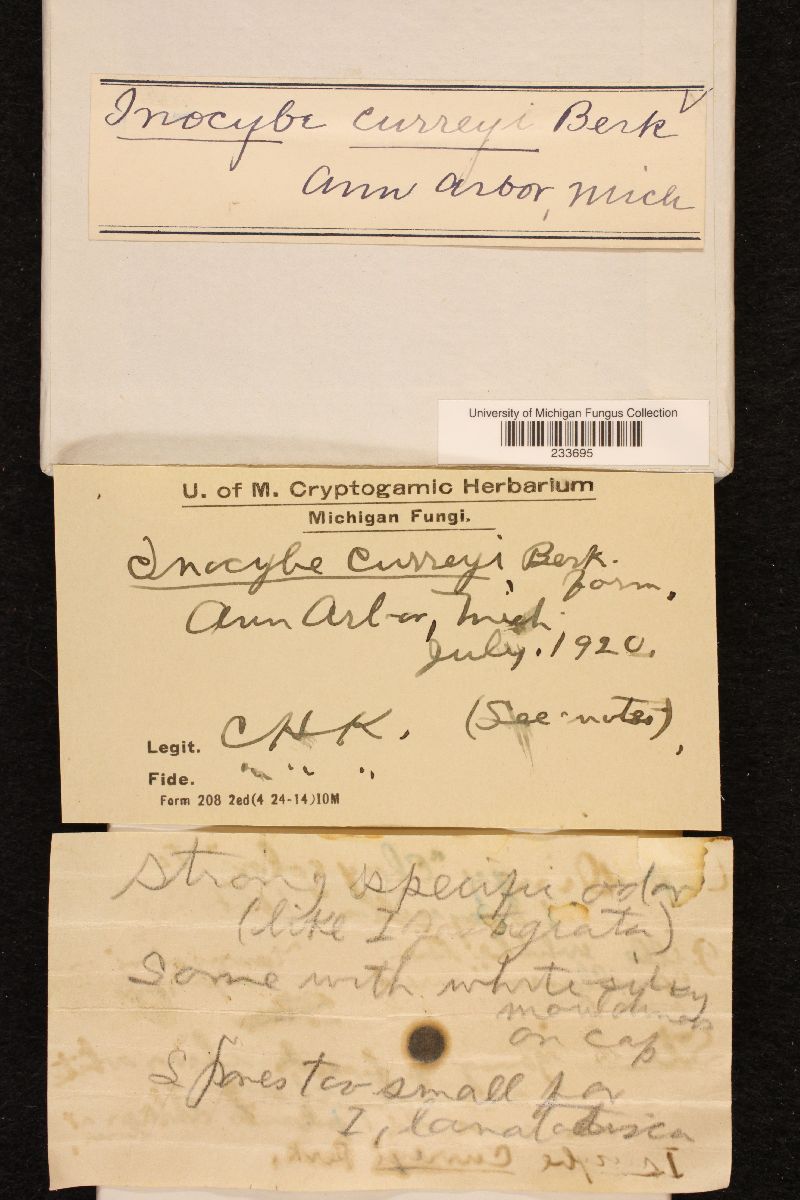 Inocybe curreyi Berk
Ann Arbor, Mich
University of Michigan Fungus Collection
233695
U. of M. Cryptogamic Herbarium
Michigan Fungi.
Inocybe curreyi Berk.
form.
Ann Arbor, Mich.
July. 1920.
(See notes),
Legit. C H K.
Fide. " " "
Form 208 2ed(4 24-14)10M
Strong specific odor
(like I. fastigiata)
Some with white silky
on cap
Spores too small for
I. lanatodisca
Inocybe Curreyi Berk.